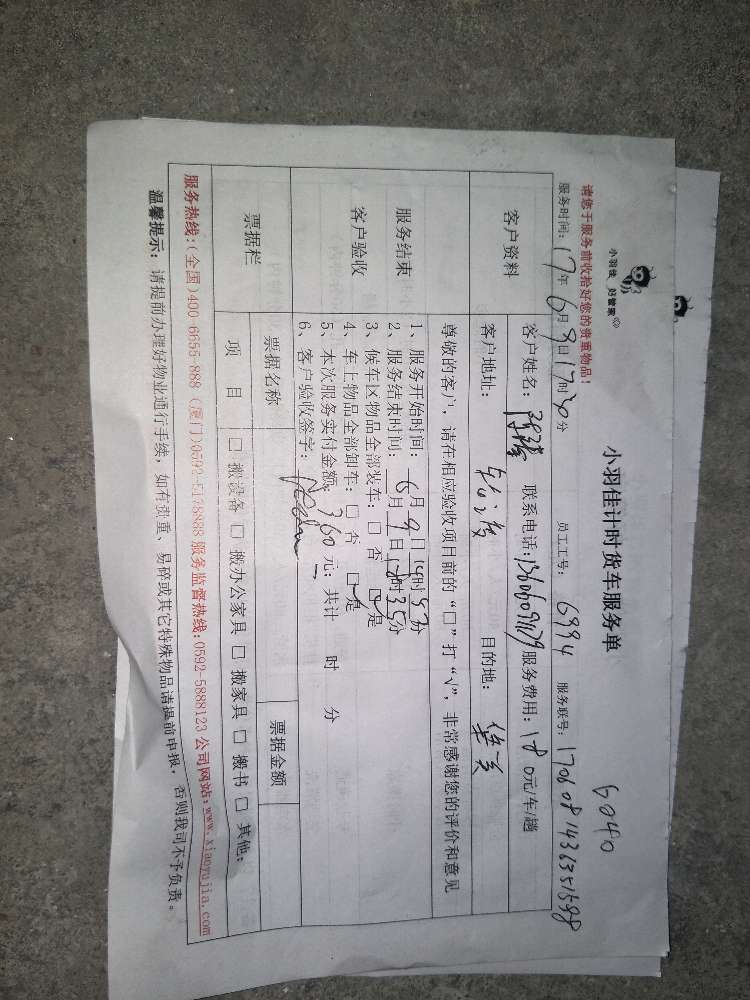 小羽佳 好管家
小羽佳计时货车服务单
6040
请您于服务前收拾好您的贵重物品!
服务时间: 17年 6月 9日 17时30分 员工工号: 6994 服务联号:
客户资料
客户姓名: 联系电话: 服务费用: 180元/车/趟
客户地址: 目的地: 集美
服务结束
客户验收
尊敬的客户, 请在相应验收项目前的“□”打“√”, 非常感谢您的评价和意见
1、服务开始时间: 6月 9日 时 分
2、服务结束时间: 月 日 时35分
3、候车区物品全部装车: □ 否 □是
4、车上物品全部卸车: □ 否 □是
5、本次服务实付金额: 360 元; 共计 时 分
6、客户验收签字:
票据栏
票据名称 票据金额
项 目 □ 搬设备 □ 搬办公家具 □ 搬家具 □ 搬书 □ 其他:
服务热线:(全国)400-6655-888 (厦门)0592-5178888 服务监督热线:0592-5888123 公司网站: www.xiaoyujia.com
温馨提示: 请提前办理好物业通行手续, 如有贵重、易碎或其它特殊物品请提前申报, 否则我司不予负责。